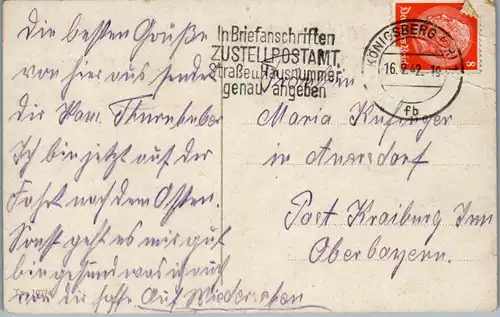 Die besten Grüße
von hier aus sendet
die Kam. Thurnhuber
Ich bin jetzt auf der
Fahrt nach dem Osten.
Sonst geht es mir gut
bin gesund was ich auch
von dir hoffe Auf Wiedersehen
In Briefanschriften
ZUSTELLPOSTAMT,
Straße u. Hausnummer
genau angeben
KÖNIGSBERG (PR)
16.2.42. 18
fb
8
Fräulein
Maria
in
Post Kraiburg Inn
Oberbayern.